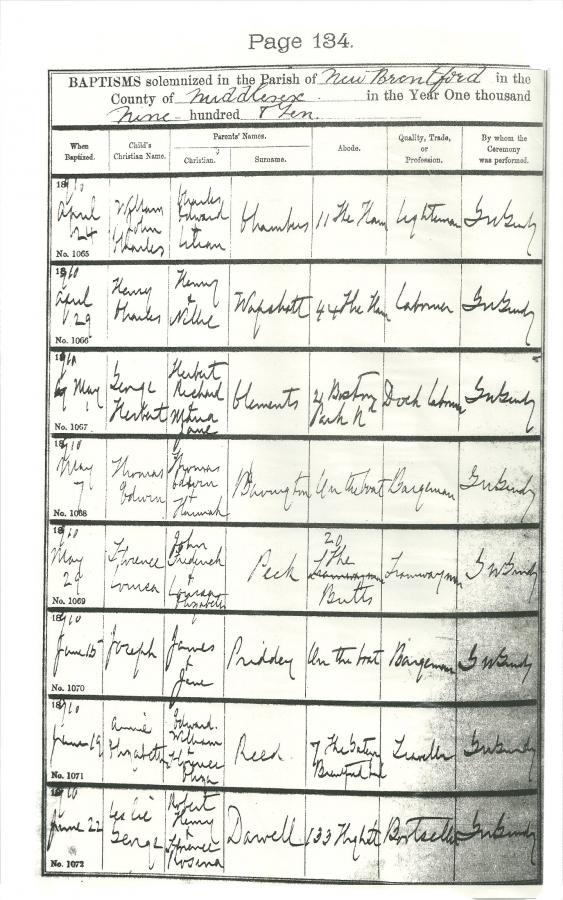 Page 134.
BAPTISMS solemnized in the Parish of New Brentford in the
County of Middlesex in the Year One thousand
Nine hundred & Ten.
When Baptized. Child's Christian Name. Parents' Names. Christian. Surname. Abode. Quality, Trade, or Profession. By whom the Ceremony was performed.
1910 April 24 No. 1065 William John Charles Charles Edward & Lilian Chambers 11 The Ham Lighterman
1910 April 29 No. 1066 Henry Charles Henry & Nellie Wapshott 44 The Ham Labourer
1910 May 1 No. 1067 George Herbert Herbert Richard & Maria Jane Clements Boston Park Rd Dock Labourer
1910 May 7 No. 1068 Thomas Edwin Thomas Edwin & Hannah On the boat Bargeman
1910 May 29 No. 1069 Florence Louisa John Frederick & Louisa Elizabeth Peck 20 The Butts Tramwayman
1910 June 15 No. 1070 Joseph James & Jane Priddey On the boat Bargeman
1910 June 19 No. 1071 Annie Elizabeth Edward William & Florence Eliza Reed 7 The
1910 June 22 No. 1072 Leslie George Robert Henry & Florence Rosina Darvell 133 High St